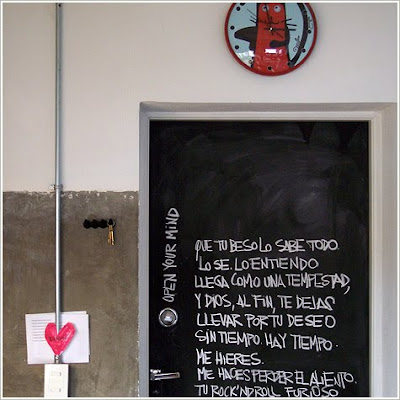 OPEN YOUR MIND
QUE TU BESO LO SABE TODO.
LO SE. LO ENTIENDO
LLEGA COMO UNA TEMPESTAD,
Y DIOS, AL FIN, TE DEJAS
LLEVAR POR TU DESEO
SIN TIEMPO. HAY TIEMPO.
ME HIERES.
ME HACES PERDER EL ALIENTO.
TU ROCK'N'DROLL FURIOSO